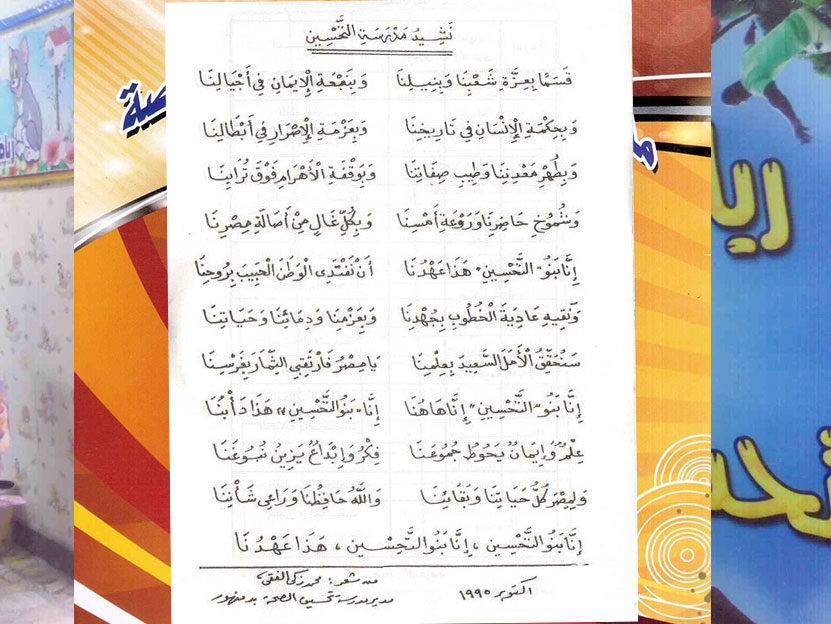 نَشِيدُ مَدْرَسَةِ التَّحْسِين
قَسَمًا بِعِزَّةِ شَعْبِنَا وَبِنِيلِنَا وَبِنَفْحَةِ الْإِيمَانِ فِي أَجْيَالِنَا
وَبِحِكْمَةِ الْإِنْسَانِ فِي تَارِيخِنَا وَبِعَزْمَةِ الْإِصْرَارِ فِي أَبْطَالِنَا
وَبِطُهْرِ مَعْدِنِنَا وَطِيبِ صِفَاتِنَا وَبِوَقْفَةِ الْأَهْرَامِ فَوْقَ تُرَابِنَا
وَشُمُوخِ حَاضِرِنَا وَرَوْعَةِ أَمْسِنَا وَبِكُلِّ غَالٍ مِنْ أَصَالَةِ مِصْرِنَا
إِنَّا بَنُو "التَّحْسِينِ" هَذَا عَهْدُنَا أَنْ نَفْتَدِى الْوَطَنَ الْحَبِيبَ بِرُوحِنَا
وَنَقِيهِ عَادِيَةَ الْخُطُوبِ بِجُهْدِنَا وَبِعَزْمِنَا وَدِمَائِنَا وَحَيَاتِنَا
سَنُحَقِّقُ الْأَمَلَ السَّعِيدَ بِعِلْمِنَا يَا مِصْرُ فَارْتَقِبِي الثِّمَارَ بِغَرْسِنَا
إِنَّا بَنُو "التَّحْسِينِ" إِنَّا هَاهُنَا إِنَّا "بَنُو التَّحْسِينِ" هَذَا دَأْبُنَا
عِلْمٌ وَإِيمَانٌ يَحُوطُ جُمُوعَنَا فِكْرٌ وَإِبْدَاعٌ يَزِينُ نُبُوغَنَا
وَلِمِصْرَ كُلُّ حَيَاتِنَا وَبَقَائِنَا وَاللَّهُ حَافِظُنَا وَرَاعِي شَأْنِنَا
إِنَّا بَنُو التَّحْسِين ، إِنَّا بَنُو التَّحْسِين ، هَذَا عَهْدُنَا
من شعر : محمد زكى الفقى
مدير مدرسة تحسين الصحة بدمنهور
اكتوبر ١٩٩٥